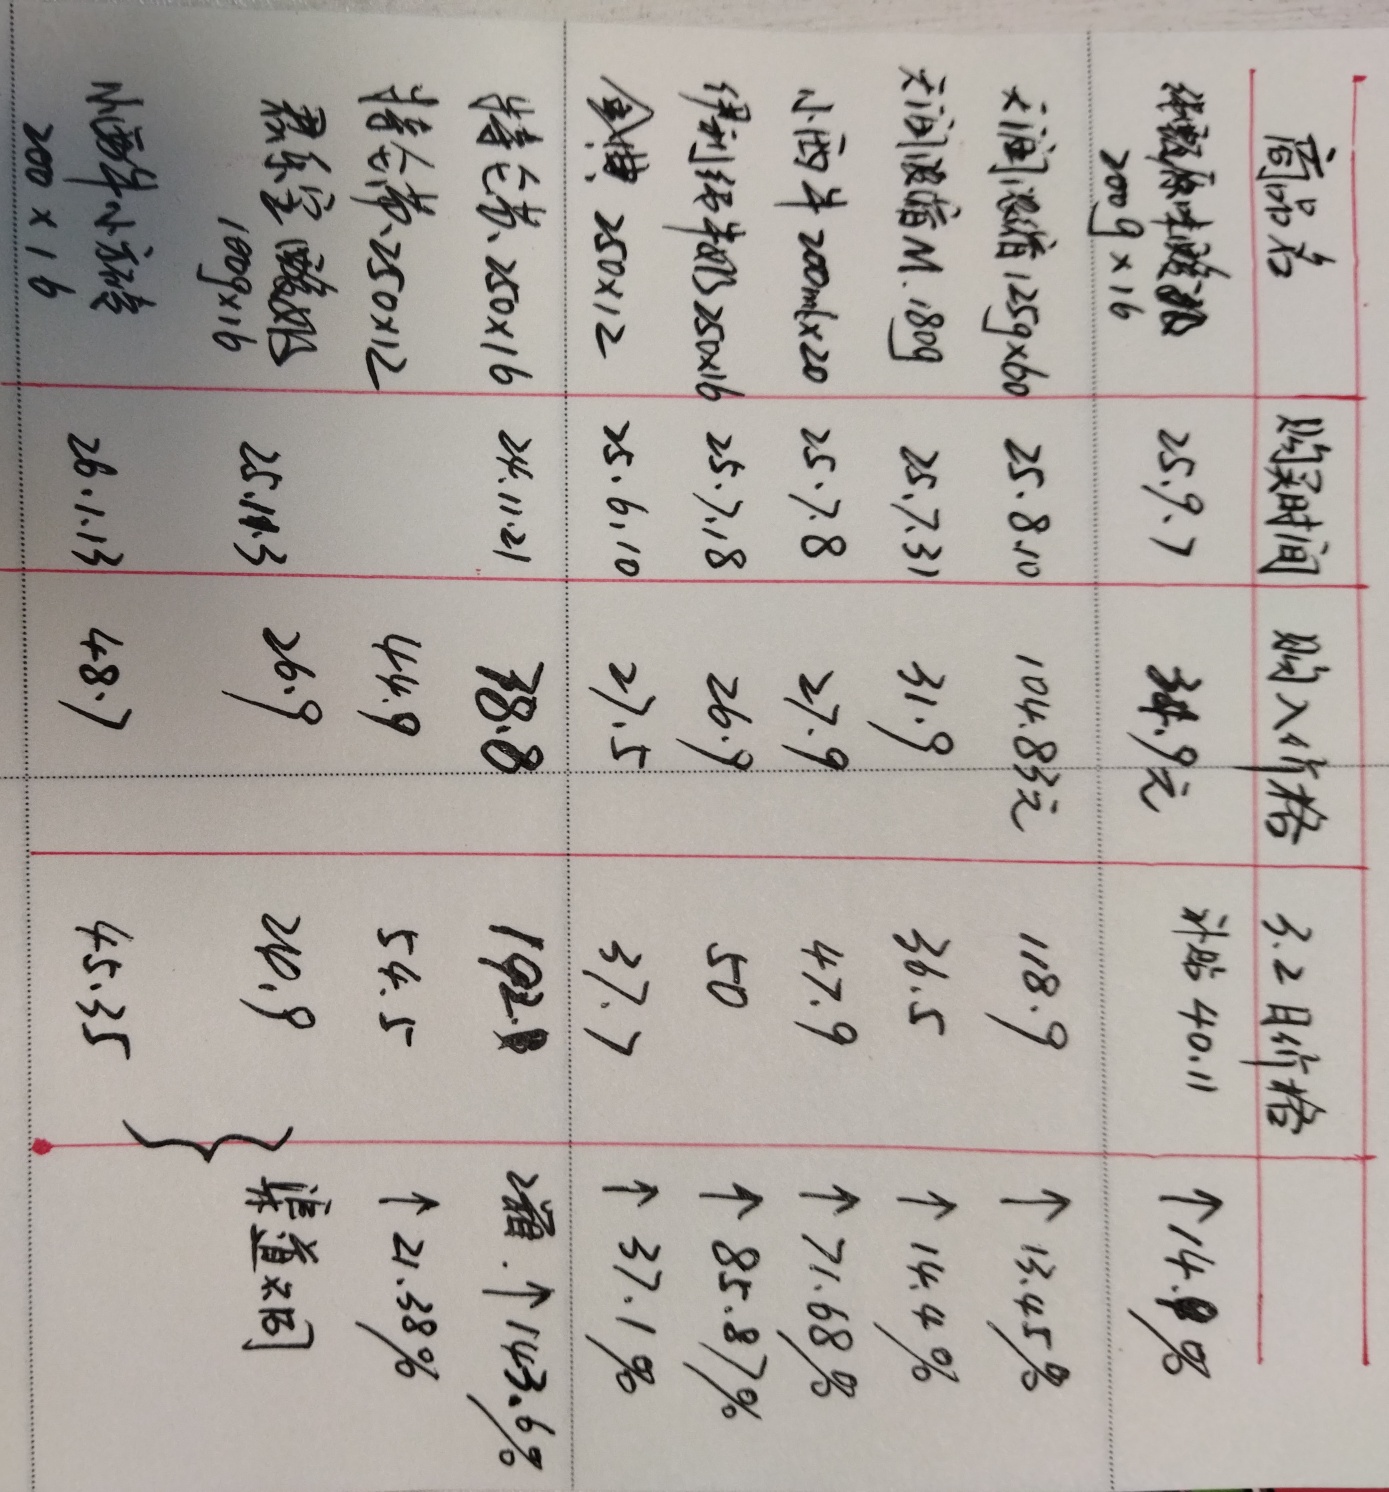 商品名 购买时间 购入价格 3.2日价格
原味酸奶 25.9.7 34.9元 补贴40.11 ↑14. %
200g×16
天润浓缩125g×60 25.8.10 104.83元 118.9 ↑13.45%
天润浓缩M.180g 25.7.31 31.9 36.5 ↑14.4%
小西牛200ml×20 25.7.8 27.9 47.9 ↑71.68%
伊利纯牛奶250×16 25.7.18 26.9 50 ↑85.87%
金典、250×12 25.6.10 27.5 37.7 ↑37.1%
特仑苏、250×16 24.11.21 78.8 192. 2箱.↑143.6%
特仑苏、250×12 44.9 54.5 ↑21.38%
君乐宝酸奶 25.11.3 26.9 20.9 渠道不同
100g×16
小西牛 26.1.13 48.7 45.35
200×16